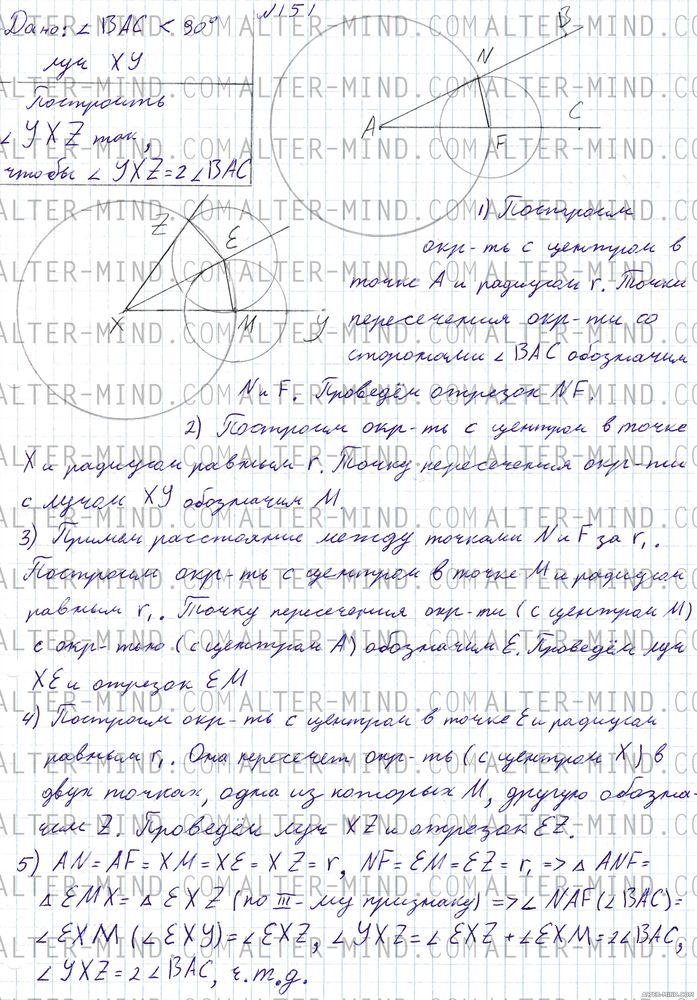 №151
Дано: ∠BAC < 90°
луч XY
Построить
∠YXZ так,
чтобы ∠YXZ=2∠BAC
A N B F C
Z E X M Y
1) Построим
окр-ть с центром в
точке A и радиусом r. Точки
пересечения окр-ти со
сторонами ∠BAC обозначим
N и F. Проведём отрезок NF.
2) Построим окр-ть с центром в точке
X и радиусом равным r. Точку пересечения окр-ти
с лучом XY обозначим M.
3) Примем расстояние между точками N и F за r₁.
Построим окр-ть с центром в точке M и радиусом
равным r₁. Точку пересечения окр-ти (с центром M)
с окр-тью (с центром A) обозначим E. Проведём луч
XE и отрезок EM
4) Построим окр-ть с центром в точке E и радиусом
равным r₁. Она пересечет окр-ть (с центром X) в
двух точках, одна из которых M, другую обозна-
чим Z. Проведём луч XZ и отрезок EZ.
5) AN=AF=XM=XE=XZ=r, NF=EM=EZ=r₁ => △ANF=
△EMX=△EXZ (по III-му признаку) => ∠NAF(∠BAC)=
∠EXM (∠EXY)=∠EXZ, ∠YXZ=∠EXZ+∠EXM=2∠BAC,
∠YXZ=2∠BAC, ч.т.д.
ALTER-MIND.COM